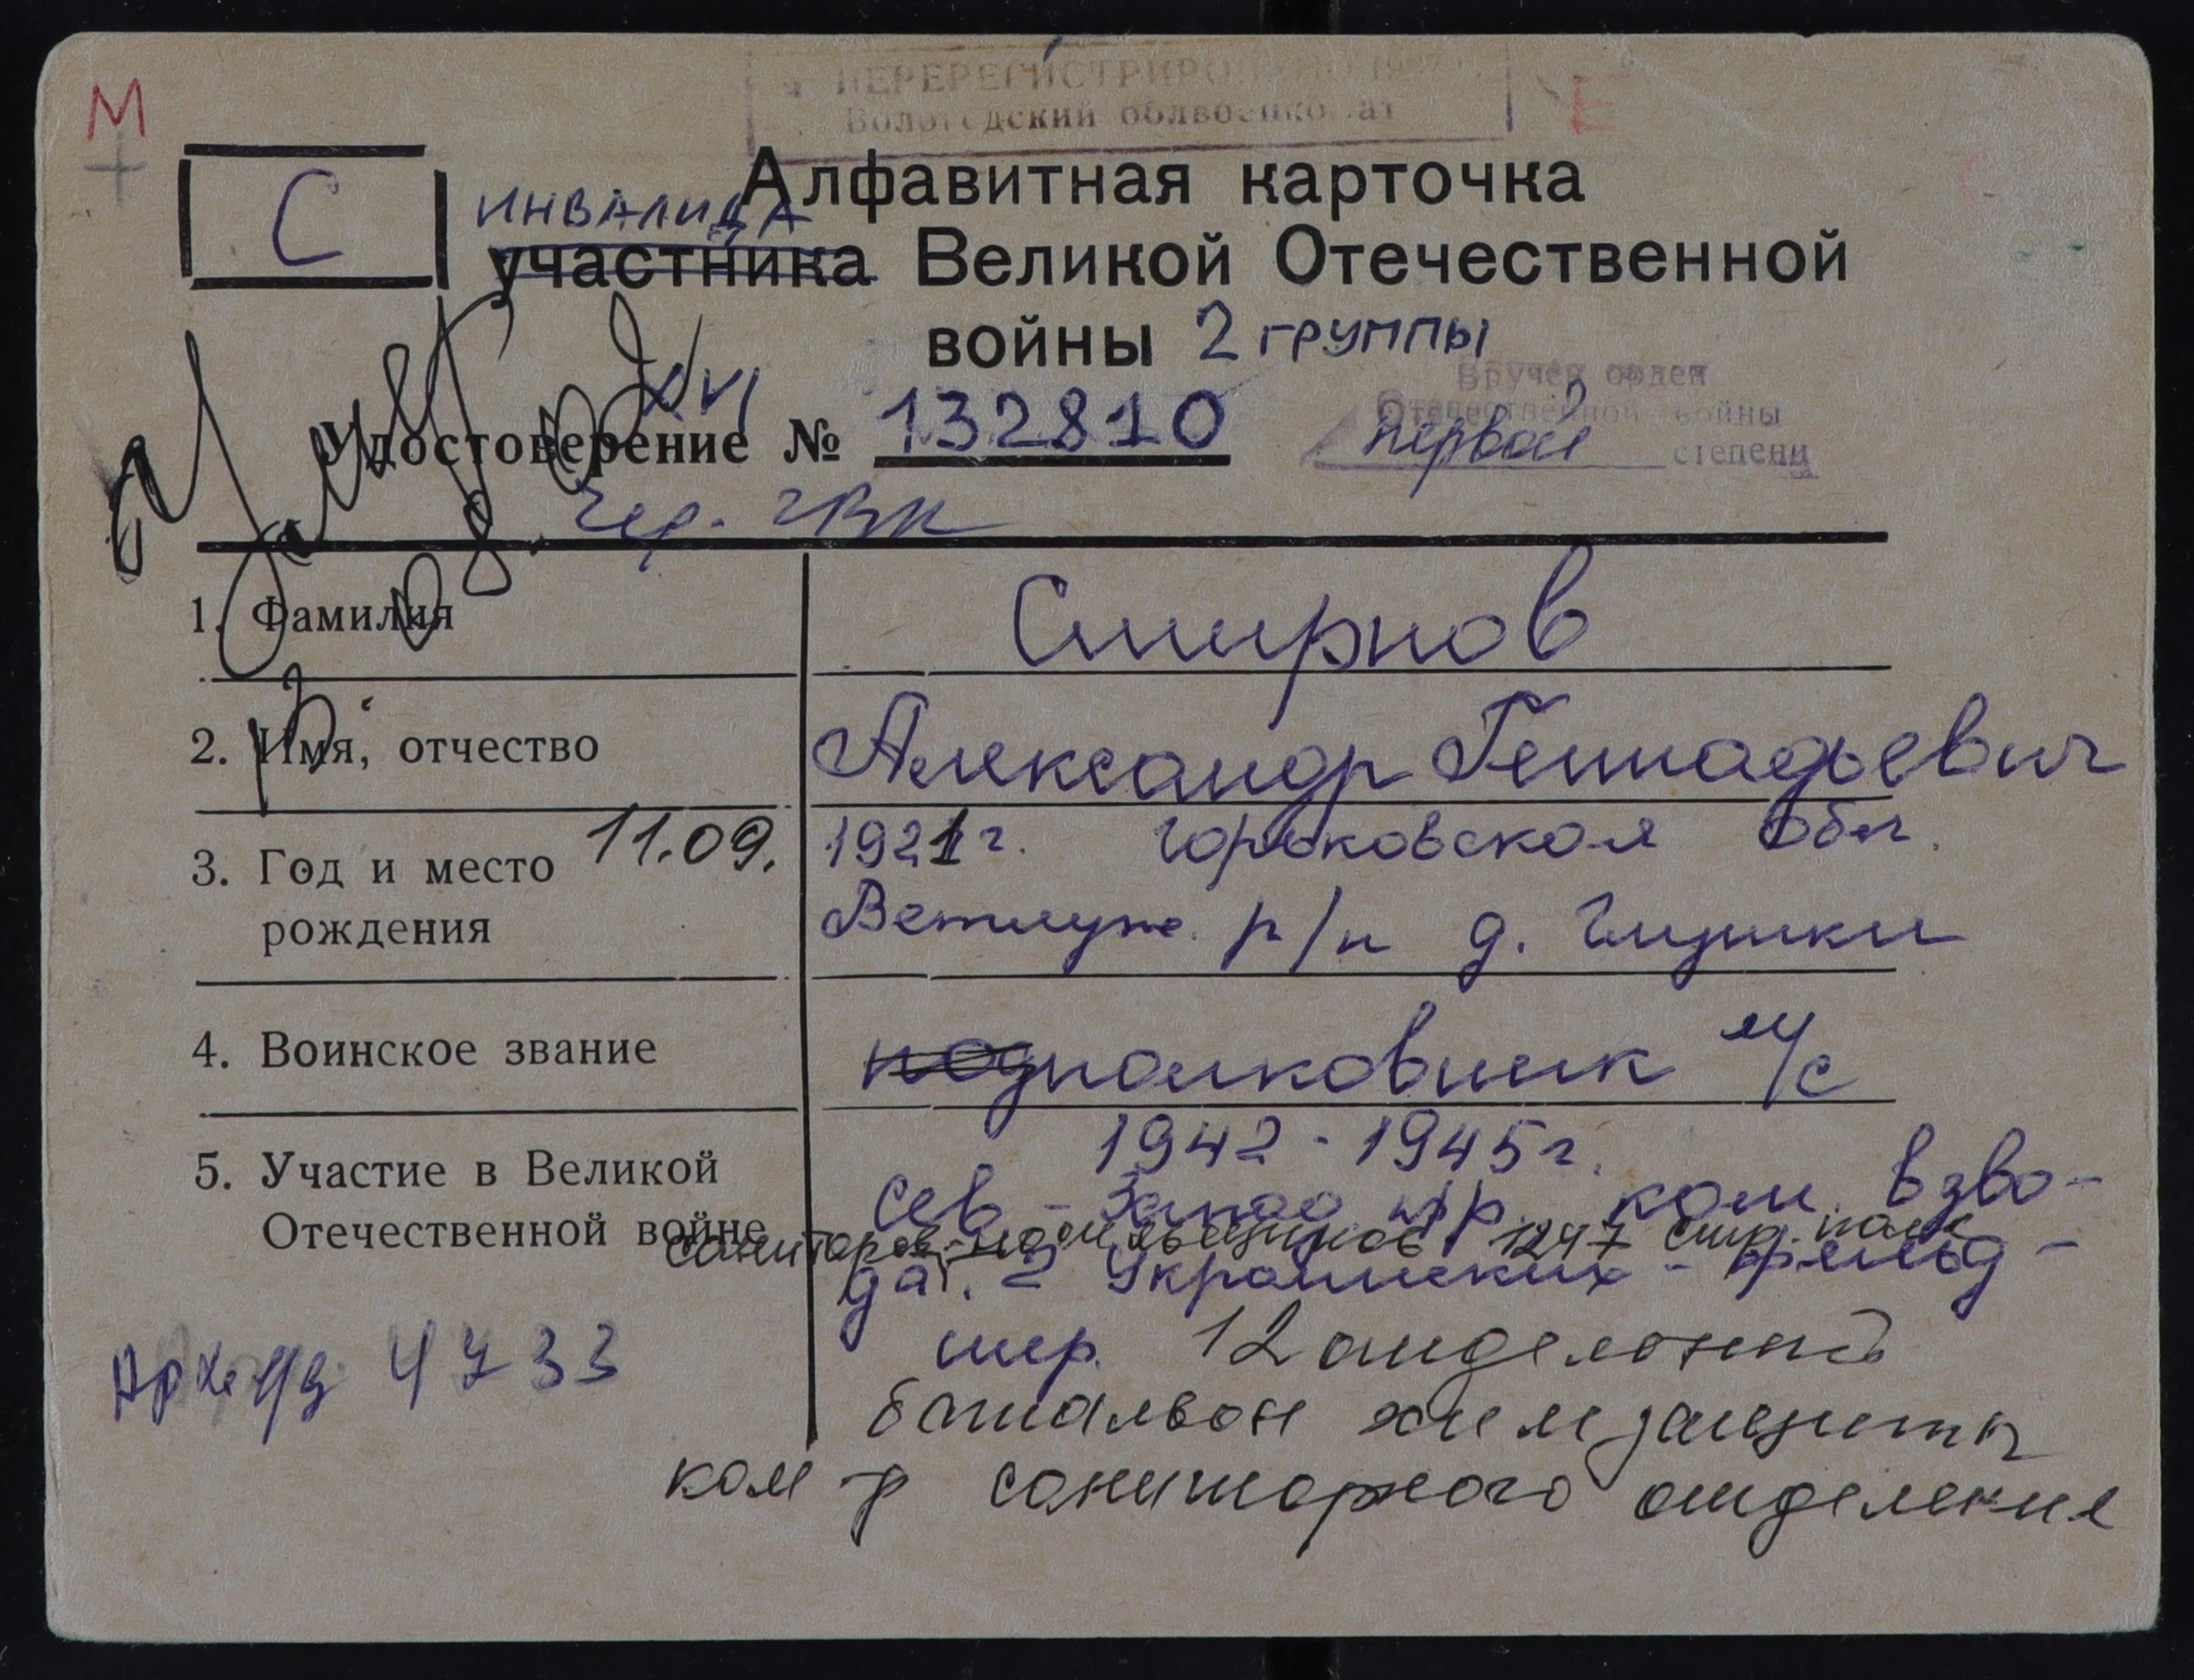 М
ПЕРЕРЕГИСТРИРОВАНО 199
Вологодский облвоенкомат
Е
С
Алфавитная карточка
ИНВАЛИДА
участника Великой Отечественной
войны 2 группы
Вручен орден
Отечественной войны
первой степени
Удостоверение № 132810
Чер. ГВК
1. Фамилия
Смирнов
2. Имя, отчество
Александр Геннадьевич
3. Год и место рождения
11.09. 1921 г. Горьковская обл.
Ветлуж. р/н д. Глушки
4. Воинское звание
подполковник м/с
5. Участие в Великой
Отечественной войне
1942 - 1945 г.
Сев - Запад. фр. ком. взво-
санитаров-носильщиков 1247 стр. полк
да. 2 Украинских - фельд-
шер. 12 отделений
батальон химзащиты
ком-р санитарного отделения
4733